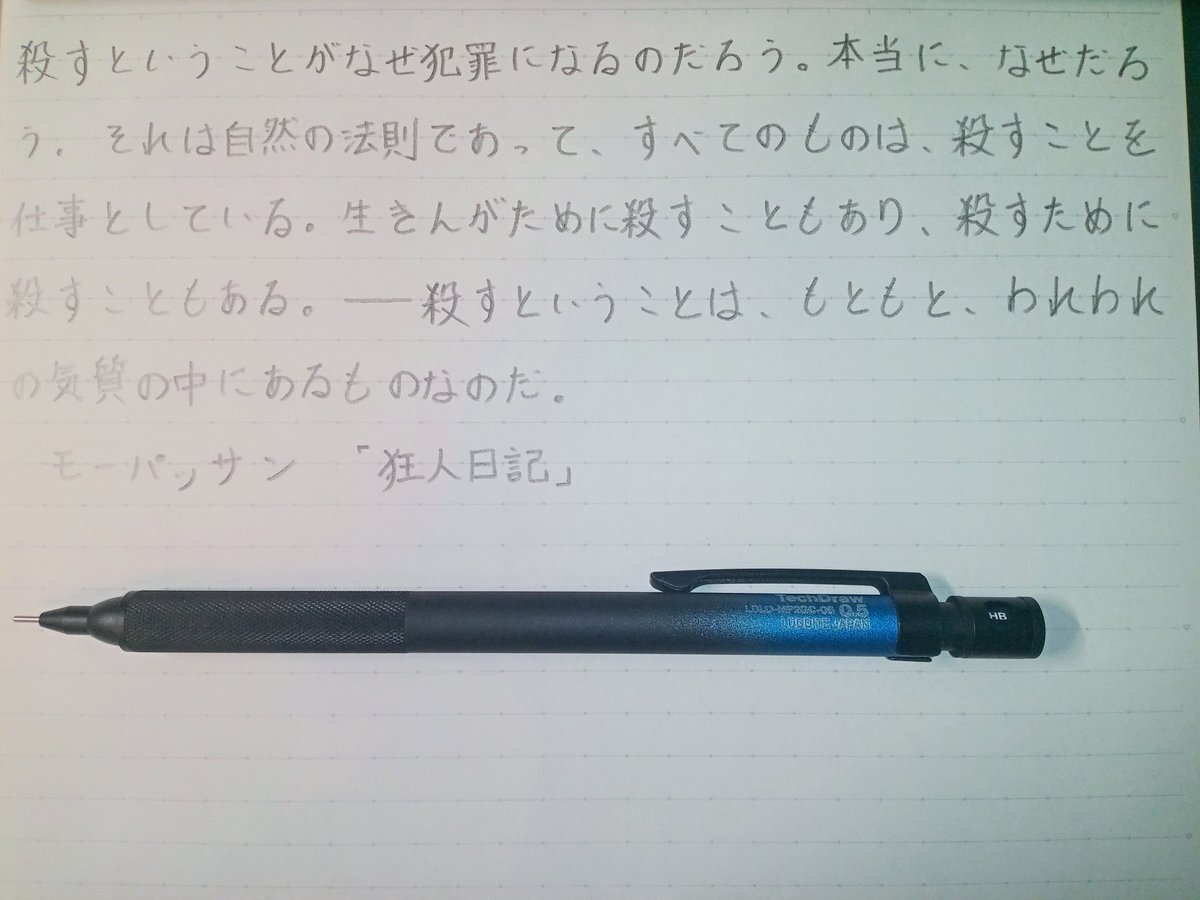 殺すということがなぜ犯罪になるのだろう。本当に、なぜだろ
う。それは自然の法則であって、すべてのものは、殺すことを
仕事としている。生きんがために殺すこともあり、殺すために
殺すこともある。――殺すということは、もともと、われわれ
の気質の中にあるものなのだ。
モーパッサン 「狂人日記」
TechDraw
0.5
LUDDITE JAPAN
HB